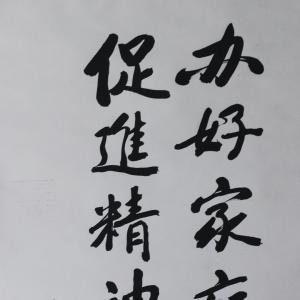 办好家
促進精神